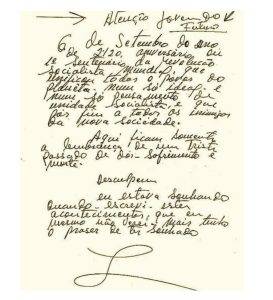 Atenção Jovem do
Futuro
6 de Setembro do ano
de 2120, aniversario ou
1º centenario da revolução
Socialista Mundial, que
unificou todos os povos do
planeta num só ideal e
num só pensamento de
unidade socialista, e que
pôs fim a todos os inimigos
da nova sociedade.
Aqui ficam somente
a lembrança de um triste
passado de dôr, sofrimento e
morte.
Desculpem
eu estava sonhando
quando escrevi estes
acontecimentos, que eu
mesmo não verei Mais tenho
o praser de ter sonhado